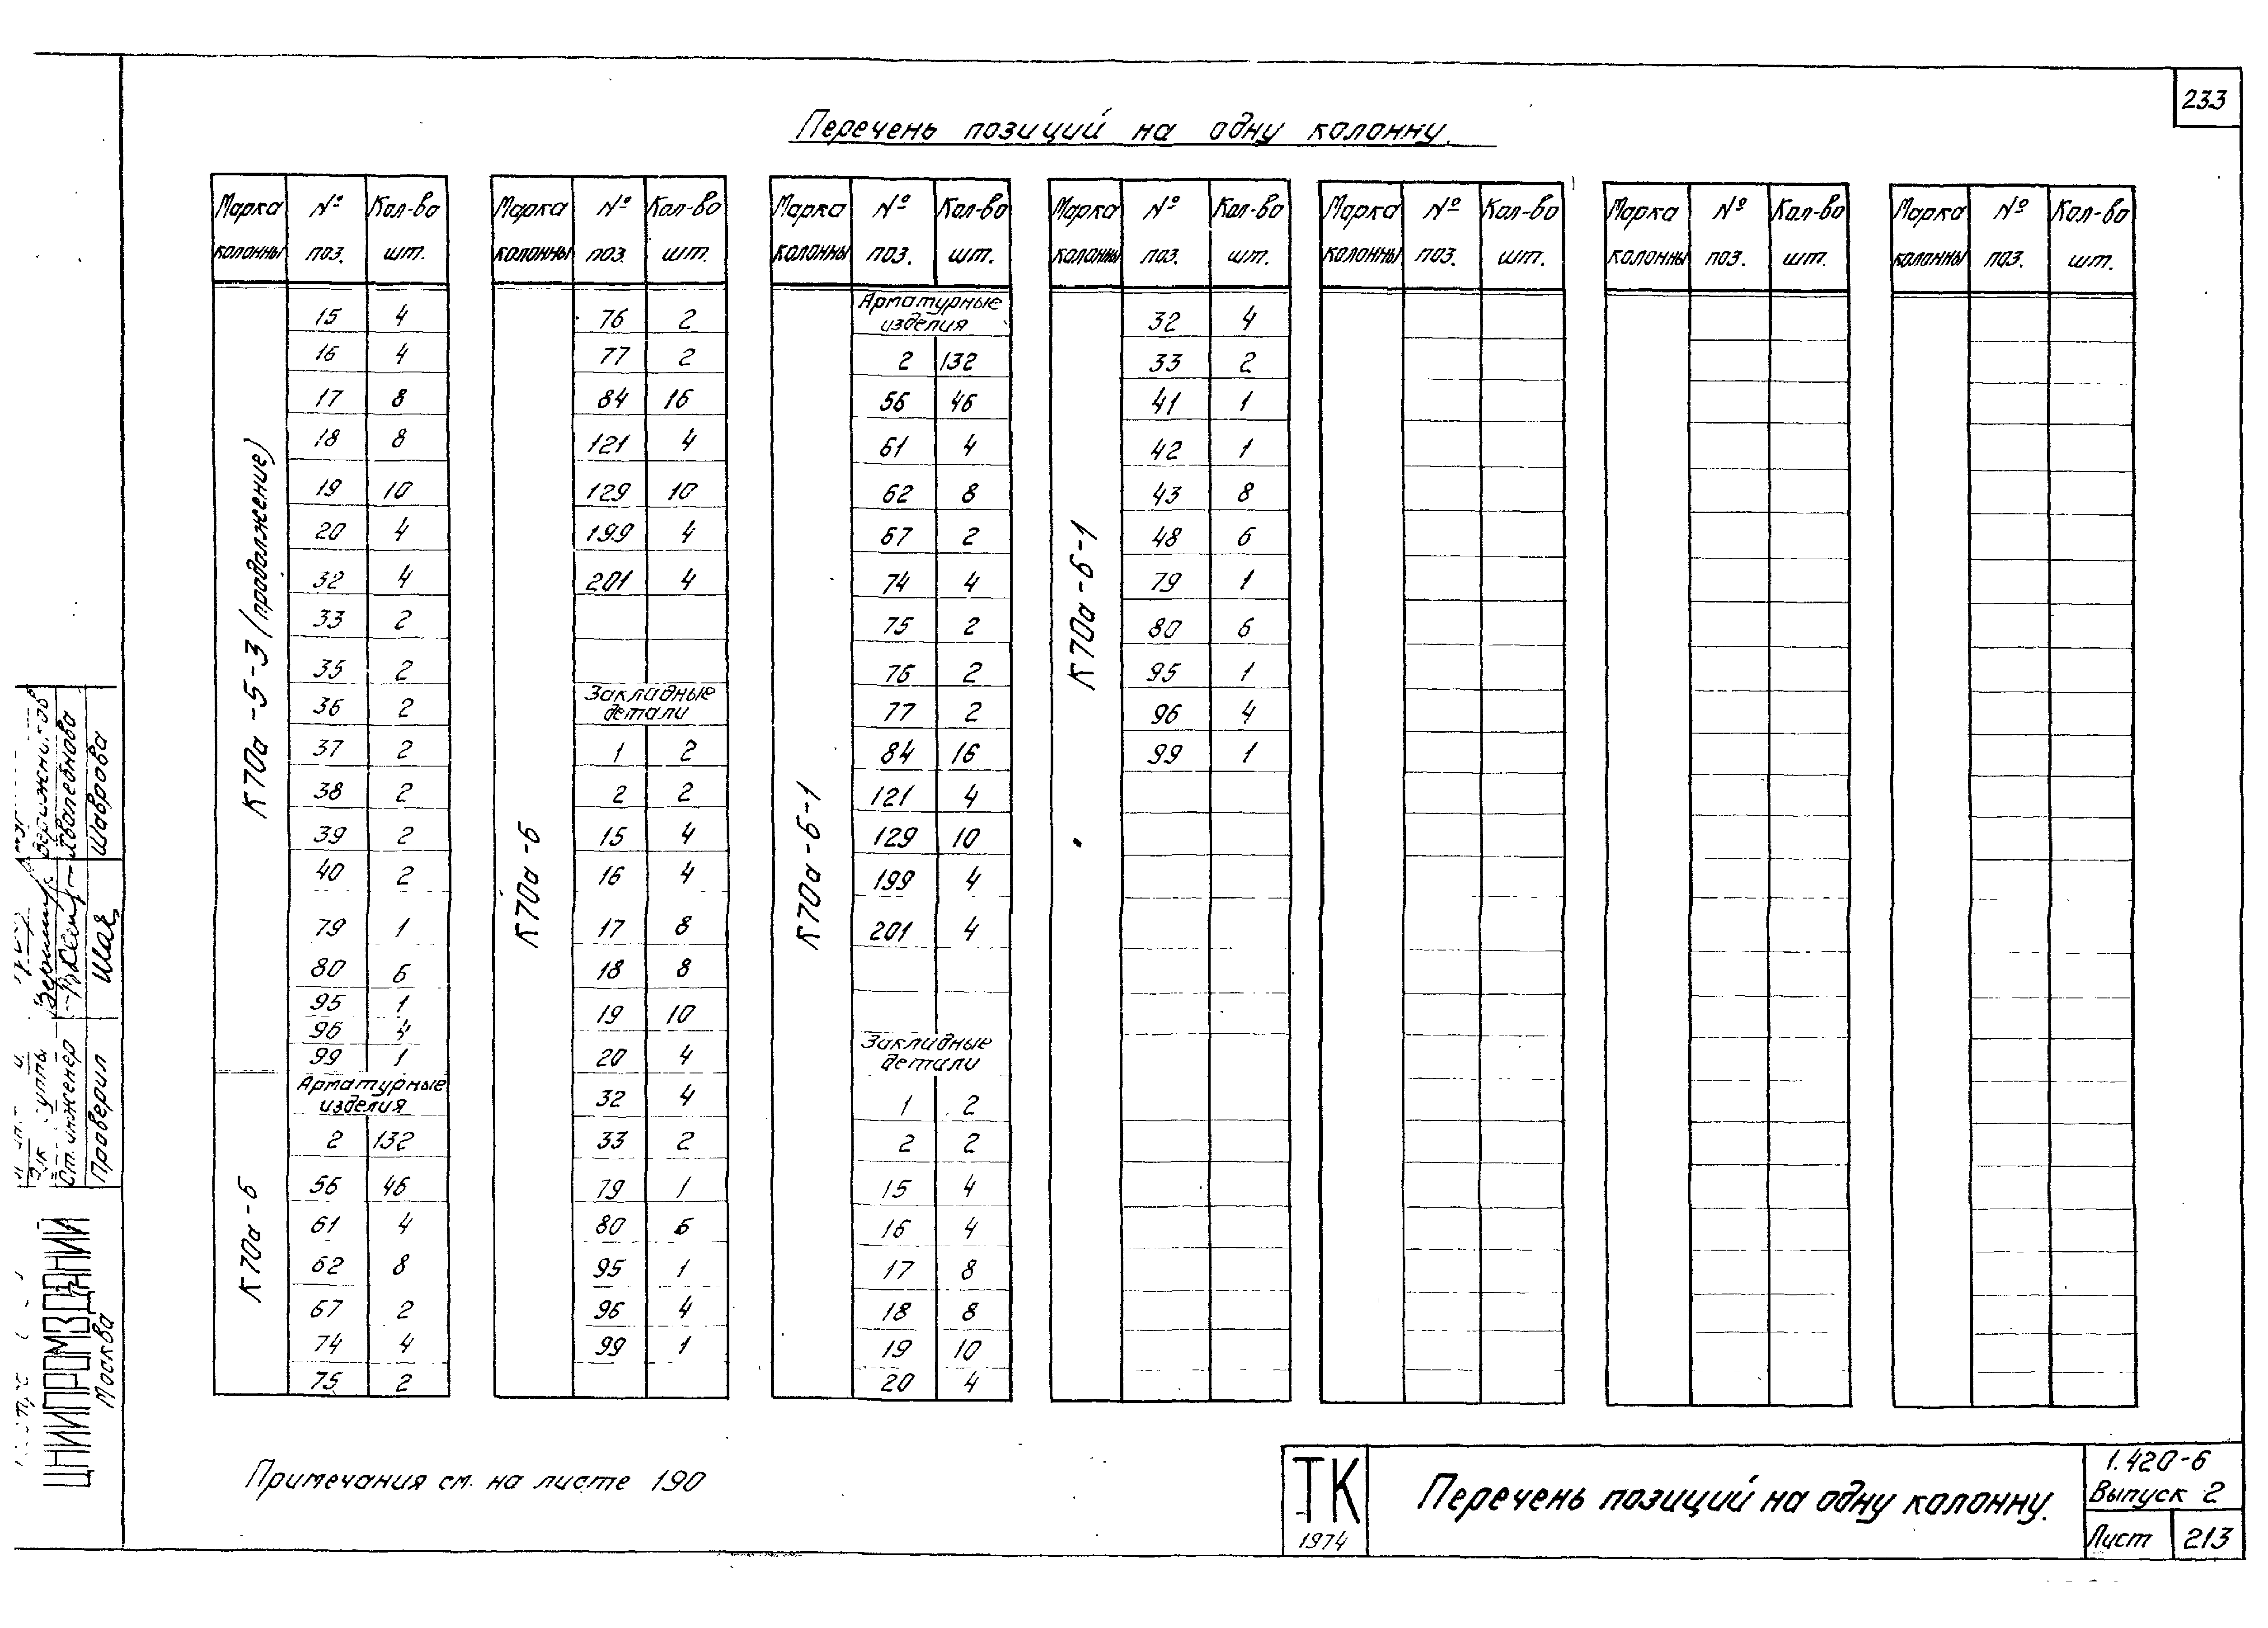 233
Перечень позиций на одну колонну.
Марка колонны № поз. Кол-во шт.
К70а-5-3 (продолжение)
15 4
16 4
17 8
18 8
19 10
20 4
32 4
33 2
35 2
36 2
37 2
38 2
39 2
40 2
79 1
80 6
95 1
96 4
99 1
К70а-6
Арматурные изделия
2 132
56 46
61 4
62 8
67 2
74 4
75 2
Марка колонны № поз. Кол-во шт.
К70а-6
76 2
77 2
84 16
121 4
129 10
199 4
201 4
Закладные детали
1 2
2 2
15 4
16 4
17 8
18 8
19 10
20 4
32 4
33 2
79 1
80 6
95 1
96 4
99 1
Марка колонны № поз. Кол-во шт.
К70а-6-1
Арматурные изделия
2 132
56 46
61 4
62 8
67 2
74 4
75 2
76 2
77 2
84 16
121 4
129 10
199 4
201 4
Закладные детали
1 2
2 2
15 4
16 4
17 8
18 8
19 10
20 4
Марка колонны № поз. Кол-во шт.
К70а-6-1
32 4
33 2
41 1
42 1
43 8
48 6
79 1
80 6
95 1
96 4
99 1
Марка колонны № поз. Кол-во шт.
Марка колонны № поз. Кол-во шт.
Марка колонны № поз. Кол-во шт.
Примечания см. на листе 190
ТК
1974
Перечень позиций на одну колонну.
1.420-6
Выпуск 2
Лист 213
ЦНИИПРОМЗДАНИЙ
Москва
Ст. инженер
Проверил Шав Шаврова